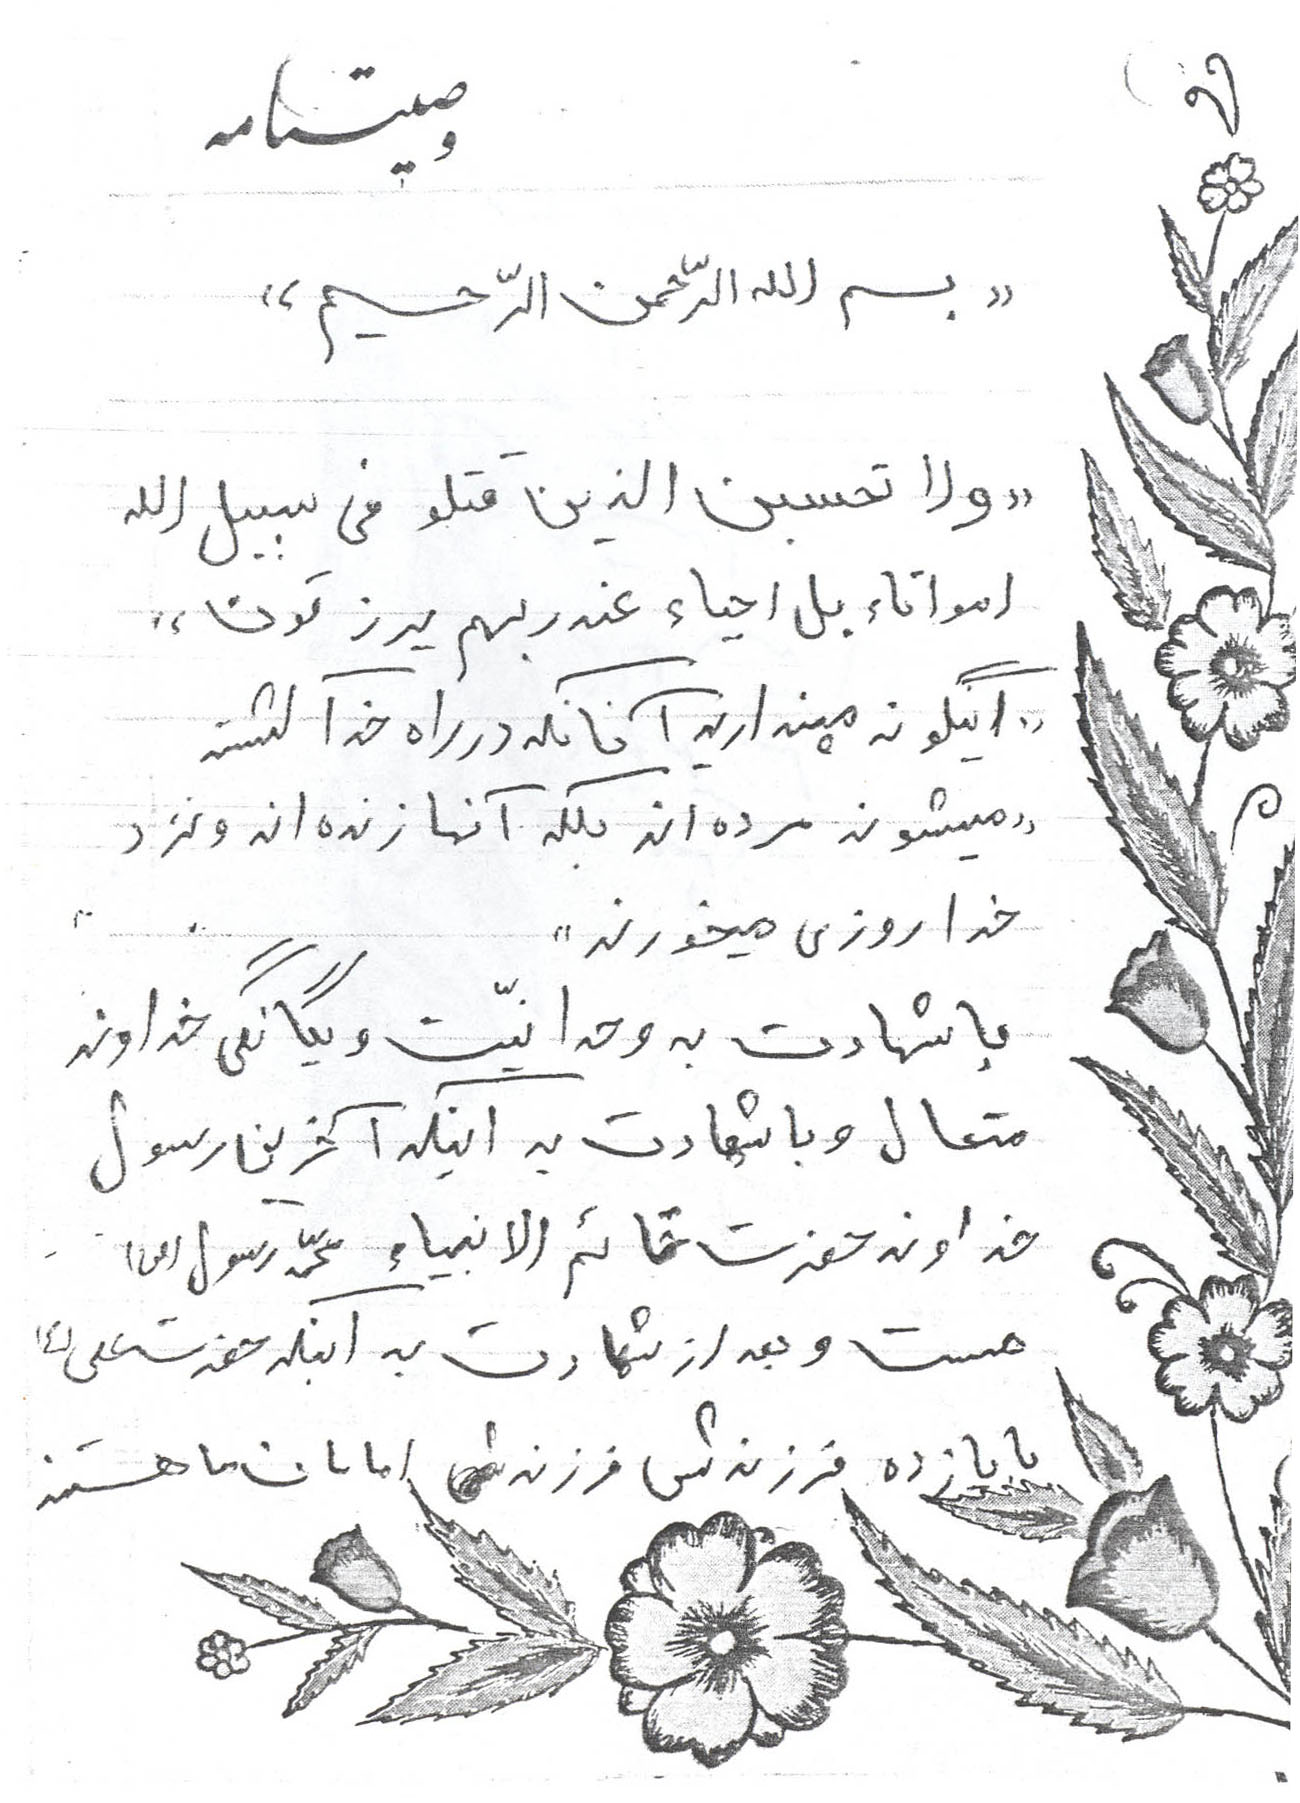 وصیتنامه
«بسم الله الرّحمن الرّحیم»
«ولا تحسبن الذین قتلو فی سبیل الله
امواتاء بل احیاء عند ربهم یرزقون»
«اینگونه مپندارید آنانکه در راه خدا کشته
«میشوند مرده‌اند بلکه آنها زنده‌اند و نزد
خدا روزی میخورند"
با شهادت به وحدانیّت و یگانگی خداوند
متعال و با شهادت به اینکه آخرین رسول
خداوند حضرت خاتم الانبیاء محمّد رسول (ص)
هست و بعد از شهادت به اینکه حضرت علی (ع)
با یازده فرزندش فرزندش امامان ما هستند